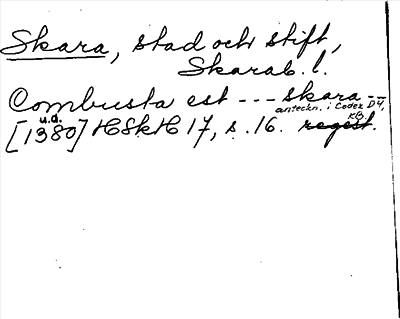 Skara, stad och stift,
Skarab. l.
Combusta est --- skara --
anteckn. i Codex D 4,
KB.
u.d.
[1380] HSkH 17, s. 16. regest.